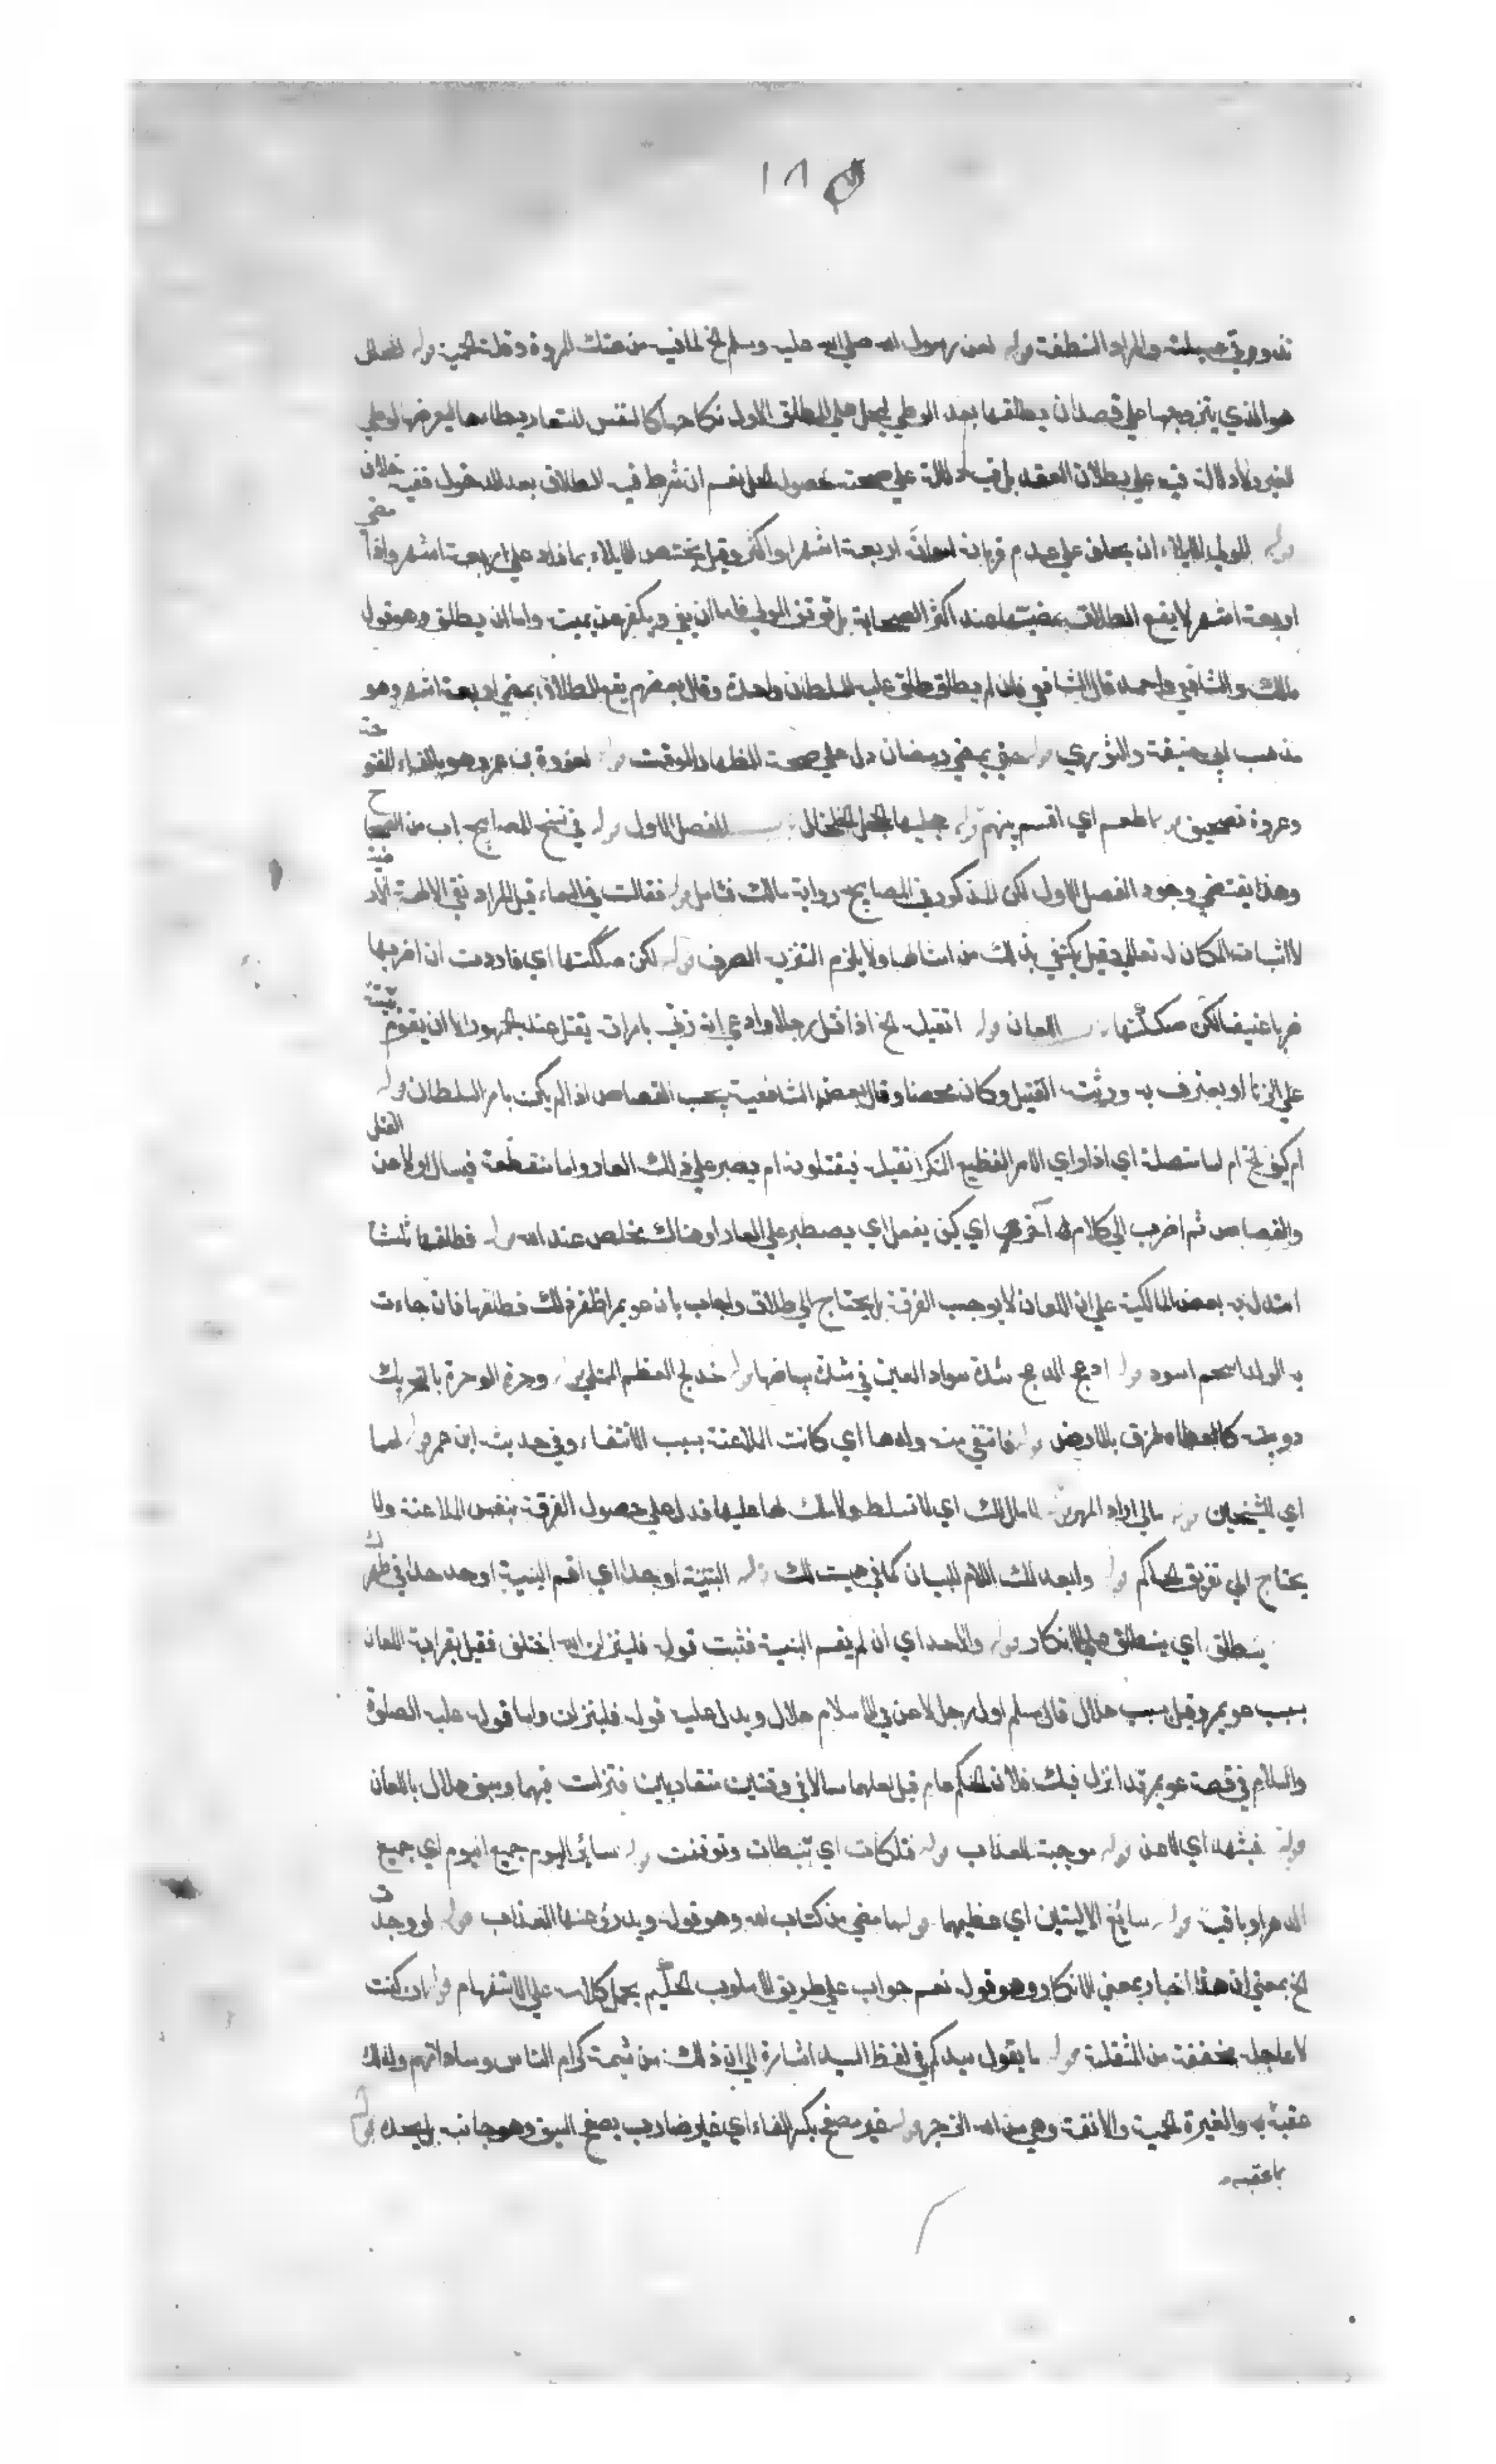 ١٨٥
تذوقي عسيلته والمراد النطفة قوله لعن رسول الله صلى الله عليه وسلم الخ لما فيه من هتك المروة وقلة الحمية قوله المحلل
هو الذي يتزوجها على قصد ان يطلقها بعد الوطي ليحل على المطلق الاول نكاحها كالتيس المستعار يطاءها ليعرضها لوطي
الغير ولا دلالة فيه على بطلان العقد بل فيه دلالة على صحته لحصول الحل نعم ان شرط فيه الطلاق بعد الدخول ففيه خلاف
قوله المولي الايلاء ان يحلف على عدم قربان امراته اربعة اشهر او اكثر وقيل يختص الايلاء بما زاد على اربعة اشهر واذا مضى
اربعة اشهر لا يقع الطلاق بمضيتها عند اكثر الصحابة بل توقف المولي فاما ان يفي ويكفر عن يمينه واما ان يطلق وهو قول
مالك والشافعي واحمد قال الشافعي فان لم يطلق طلق عليه السلطان واحدة وقال بعضهم يقع الطلاق بمضي اربعة اشهر وهو
مذهب ابي حنيفة والثوري قوله حتى يمضي رمضان دل على صحة الظهار الموقت قوله لعروة بن عمرو هو بالفاء المفتوحة
وعروة تصحيف قوله اطعم اي اقسم بينهم قوله حجليها الحجل الخلخال باب الفصل الاول قوله في نسخ المصابيح باب من الصحاح
وهذا يقتضي وجود الفصل الاول لكن المذكور في المصابيح رواية مالك فتامل قوله فقالت في السماء قيل المراد نفي الالهة الارضية
لا اثبات المكان له تعالى وقيل يكتفى بذلك من امثالها ولا يلزم التنزيه الصرف قوله لكن صككتها اي فاردت ان اضربها
ضربا عنيفا لكن صككتها باب اللعان قوله ايقتله الخ اذا قتل رجلا وادعى انه زنى بامراته يقتل عند الجمهور الا ان يقوم بينة
على الزنا او يعترف به ورثته القتيل وكان محصنا وقال بعض الشافعية يجب القصاص اذا لم يكن بامر السلطان قوله
ام كيف الخ ام اما متصلة اي اذا راى الامر الفظيع المنكر ايقتله فيقتلونه ام يصبر على ذلك العار واما منقطعة فيسال اولا عن القتل
والقصاص ثم اضرب الى كلام آخر اي كيف يفعل اي يصطبر على العار او هناك مخلص عند الله قوله فطلقها ثلثا
استدل به بعض المالكية على ان اللعان لا يوجب الفرقة بل يحتاج الى طلاق واجاب بان عويمرا ظن ذلك فطلقها فان جاءت
به الولد اسحم اسود قوله ادعج الدعج شدة سواد العين في شدة بياضها قوله خدلج العظم الممتلي قوله وحرة الوحرة بالتحريك
دويبة كالعظاه تلزق بالارض قوله فانتفى من ولدها اي كانت الملاعنة بسبب الانتفاء وفي حديث ابن عمر قوله لهما
اي للشيخين قوله مالي اراد المهر قوله لا مال لك اي لا تسلط ولا ملك لها عليها فدل على حصول الفرقة بنفس الملاعنة ولا
يحتاج الى تفريق الحاكم قوله وابعد لك اللام للبيان كما في هيت لك قوله البينة او حدا اي اقم البينة او حد حدا في ظهرك
ينطلق اي ينطلق على الانكار قوله والا حد اي ان لم يقم البينة فثبت قوله فلينزلن الله اختلف فقيل بقراءة اللعان
بسبب عويمر وقيل بسبب هلال قال مسلم اول رجل لاعن في الاسلام هلال ويدل عليه قوله فلينزلن واما قوله عليه الصلوة
والسلام في قصة عويمر قد انزل فيك فلان الحكم عام قيل لعلهما سالا في وقتين متقاربين فنزلت فيهما وسبق هلال باللعان
قوله فشهد اي لاعن قوله موجبة للعذاب قوله فتلكات اي تبطات وتوقفت قوله سائر اليوم جميع اليوم اي جميع
الدهر او باقية قوله سابغ الاليتين اي عظيمهما قوله ما مضى من كتاب الله وهو قوله ويدرؤ عنها العذاب قوله لو وجدت
الخ بمعنى ان هذا اخبار بمعنى الانكار وهو قوله نعم جواب على طريق الاسلوب الحكيم بحمل كلامه على الاستفهام قوله ان كنت
لاعاجله مخففة من المثقلة قوله ما يقول سيدكم في لفظ السيد اشارة الى ان ذلك من شيمة كرام الناس وساداتهم ولذلك
عقبه به والغيرة الحمية والانفة وهي من الله الزجر قوله غير مصفح بكسر الفاء اي غير ضارب بصفح السيف وهو جانبه بل بحده قوله
بما عقبه